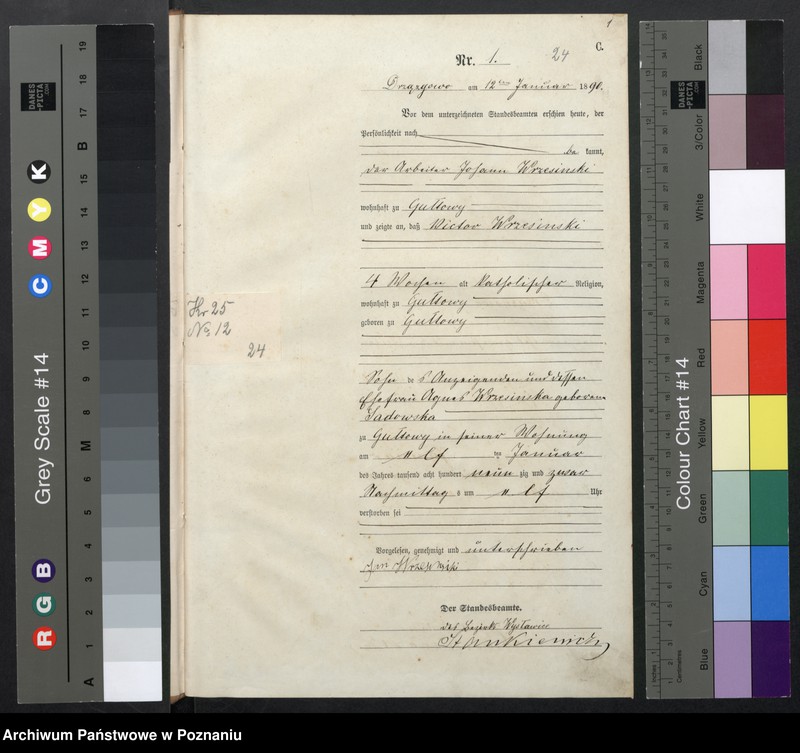 1
24
C.
Nr. 1.
Drazgowo am 12ten Januar 1890.
Vor dem unterzeichneten Standesbeamten erschien heute, der
Persönlichkeit nach
be kannt,
der Arbeiter Johann Wrzesinski
wohnhaft zu Gultowy
und zeigte an, daß Victor Wrzesinski
4 Wochen alt katholischer Religion,
wohnhaft zu Gultowy
geboren zu Gultowy
Kr 25
No 12
24
Sohn des Anzeigenden und dessen
Ehefrau Agnes Wrzesinska geborenen
Sadowska
zu Gultowy in seiner Wohnung
am elf den Januar
des Jahres tausend acht hundert neun zig und zwar
Nachmittag s um elf Uhr
verstorben sei
Vorgelesen, genehmigt und unterschrieben
Jan Wrzesiński
Der Standesbeamte.
des Bezirks Wyslawice
Stankiewicz
Grey Scale #14
DANES
-PICTA
.COM
A 1 2 3 4 5 6 M 8 9 10 11 12 13 14 15 B 17 18 19
R G B C M Y K
Colour Chart #14
DANES
-PICTA
.COM
Blue Cyan Green Yellow Red Magenta White 3/Color Black
Inches
Centimetres
Archiwum Państwowe w Poznaniu